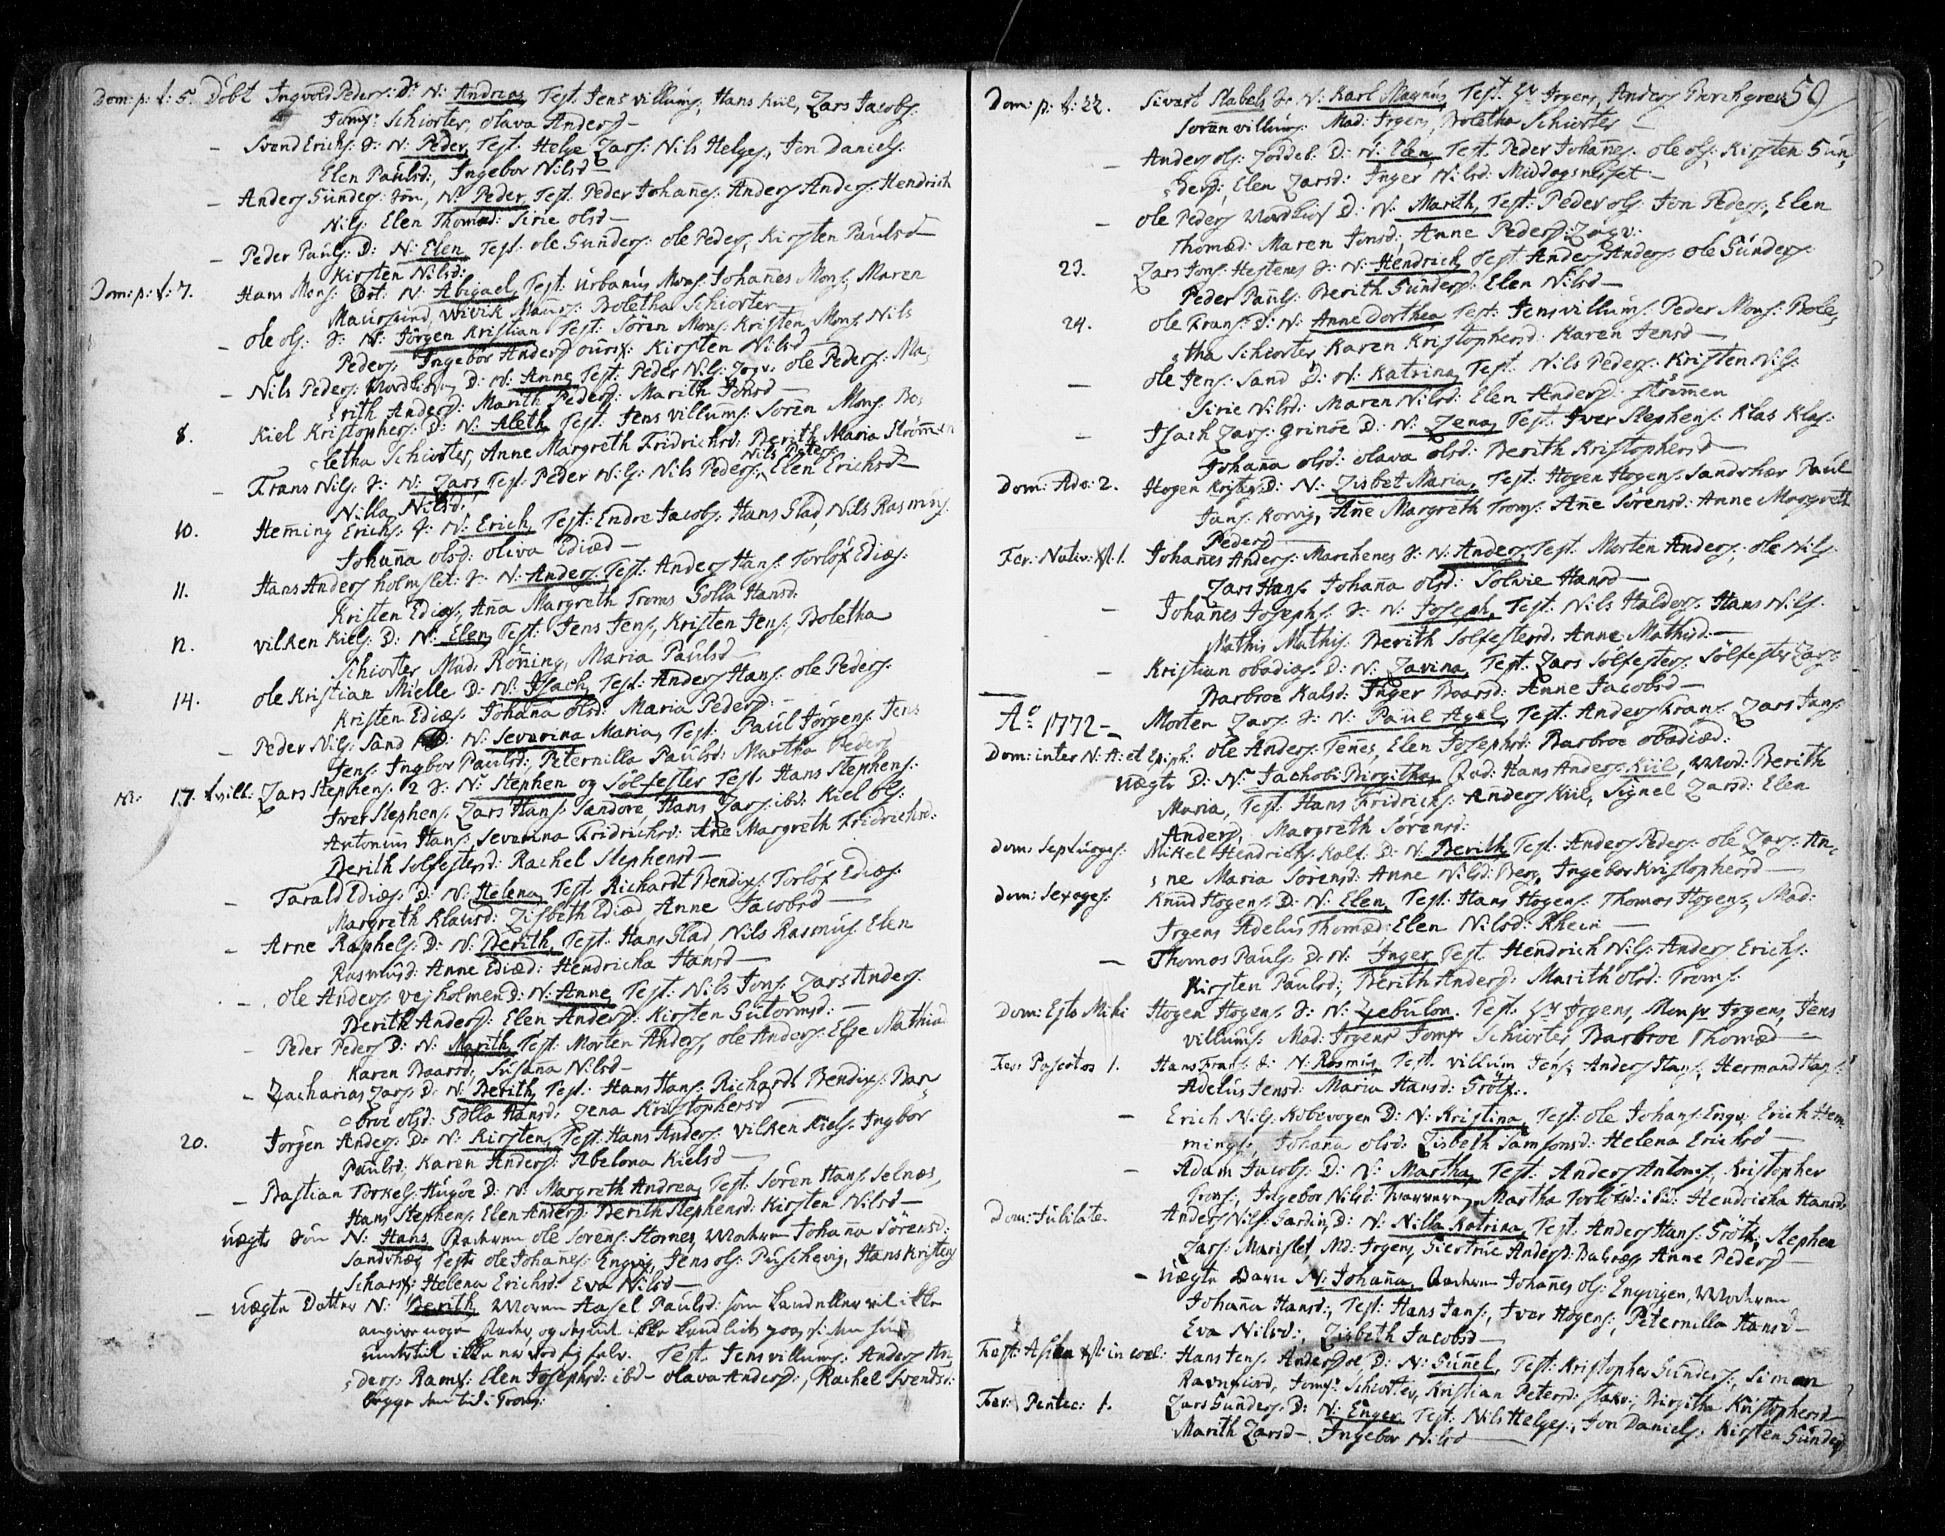 Dom: p: t: 5. Döbt Ingvold Peders: D: N: Andreas, Test: Jens villums, Hans Kiil, Lars Jacobs:
Jomf: Schiorter, olava Andersd
– Svend Erichs: S: N: Peder, Test: Helge Lars: Nils Helges:, Jon Daniels:
Elen Paulsd:, Ingebor Nilsd –
– Anders Gunders: Sön, N: Peder, Test: Peder Johañes: Anders Anders: Hendrich
Nils: Elen Thomæd: Sirie olsd –
– Peder Pauls: D: N: Elen, Test: ole Gunders: ole Peders, Kirsten Paulsd –
Kirsten Nilsd:
Dom: p: t: 7. Hans Mons: Dot: N: Abigael, Test: Urbanus Mons: Johañes Mons: Maren
Maursund, Wivik Mauers: Boletha Schiorter –
– ole ols: S: N: Jörgen Kristian Test: Sören Mons: Kristen Mons: Nils
Peders, Ingebor Anders Kirsten Nilsd –
– Nils Peders: D: N: Anne Test: Peder Nils: ole Peders: Ma,
rith Andersd: Marith Pedersd: Marith Jonsd –
8. Kiel Kristophers: D: N: Aleth, Test: Jens villums: Sören Mons: Bo,
letha Schiorter, Anne Margreth Fridrichsd: Berith Maria Strömmen
Nils Peters:
– Frans Nils: S: N: Lars Test: Peder Nils: Nils Peders:, Elen Erichsd –
Nilla Nilsd:
10. Heming Erichs: S: N: Erich, Test: Endre Jacobs: Hans Glad, Nils Rasmus:
Johaña olsd: oliva Ediæd –
11. Hans Anders holmslet: S: N: Anders Test: Anders Hans: Torlöf Ediæs:
Kristen Ediæs, Aña Margreth Troms Golla Hansd:
12. vilken Kiels: D: N: Elen, Test: Jens Jens:, Kristen Jens: Boletha
Schiorter, Mad: Röning, Maria Paulsd –
14. ole Kristian Mielle D: N: Isach, Test: Anders Hans: ole Peders:
Kristen Ediæs: Johaña olsd: Maria Pedersd: –
– Peder Nils: Sand D: N: Severina Maria, Test: Paul Jörgens: Jens
Jens: Ingbor Paulsd: Peternilla Paulsd: Martha Pedersd
NB: 17. tvill: Lars Stephens: 2 S: N: Stephen og Sölfester Test: Hans Stephens:
Iver Stephens: Lars Hans: Sandöre Hans Lars: ibd: Kiel ols:
Antonius Hans: Severina Fridrichsd: Ane Margreth Fridrichsd:
Berith Solfestersd: Rachel Stephensd –
– Tarald Ediæs: D: N: Helena, Test: Richardt Bendixs: Torlöf Ediæs:
Margreth Klausd: Lisbeth Ediæd Anne Jacobsd –
– Arne Raphels: D: N: Berith, Test: Hans Glad, Nils Rasmus: Elen
Rasmusd: Anne Ediæd: Hendricha Hansd –
– ole Anders: vejholmen D: N: Anne, Test: Nils Jons: Lars Anders:
Berith Andersd: Elen Andersd: Kirsten Gutormsd: –
– Peder Peders D: N: Marith, Test: Morten Anders, ole Anders: Else Mathiæd
Karen Baarsd: Susana Nilsd –
– Zacharias Lars: D: N: Berith, Test: Hans Hans: Richardt Bendixs: Bar,
broe olsd: Golla Hansd: Lena Kristophersd –
20. Jörgen Anders: D: N: Kirsten, Test: Hans Anders: vilken Kiels: Ingbor
Paulsd: Karen Andersd: Abelona Kielsd –
– Bastian Torkels: Hugöe D: N: Margreth Andrea, Test: Sören Hans: Selnæs,
Hans Stephens: Elen Andersd: Berith Stephensd: Kirsten Nilsd –
uægte Sön N: Hans, Faderen ole Sörens: Stornes, Moderen Johaña Sörensd:
Sandskær, Test: ole Johañes: Engvig, Jens ols: Puschevig, Hans Kristens:
Helena Erichsd: Eva Nilsd –
– uægte Datter N: Berith, Moeren Aasel Paulsd: som kand eller vil ikke
angive nogen Fader, og
ikke selv. Test: Jens villums: Anders An,
ders: Ramf: Elen Josephsd: ibd – olava Andersd:, Rachel Svendsd:
bygge Troms:
59
Dom: p: t: 22. Sivert Stabels S: N: Karl Magnus, Test: Hr Irgens, Anders Borchgrev
Sören villums: Mad: Irgens, Boletha Schiorter –
– Anders ols: D: N: Elen, Test: Peder Johañes: ole ols: Kirsten Gun,
dersd: Elen Larsd: Inger Nilsd: Middagsneset –
– ole Peders D: N: Marith, Test: Peder ols: Jon Peders:, Elen
Thomæd: Maren Jonsd:, Anne Pedersd:
23. Lars Jons: Hestenes S: N: Hendrich, Test: Anders Anders: ole Gunders:
Peder Pauls: Berith Gundersd: Elen Nilsd –
24. ole Frans: D: N: Anne Dorthea, Test: Jens villums: Peder Mons: Bole,
tha Schiorter, Karen Kristophersd: Karen Jensd –
– ole Jens: Sand D: N: Katrina, Test: Nils Peders: Kristen Nils:
Sirie Nilsd: Maren Nilsd: Elen Andersd: Strömmen
– Isach Lars: Grinöe D: N: Lena, Test: Iver Stephens: Klas Klas:
Johaña olsd: olava olsd: Berith Kristophersd –
Dom: Adv: 2. Hogen Kristens: D: N: Lisbet Maria, Test: Hogen Hogens: Sandskær Paul
Jans: Korvig, Añe Margreth Troms: Añe Sörensd: Anne Margreth
Pedersd –
Fer: Nativ: Xt: 1. Johañes Anders: Marchenes S: N: Anders, Test: Morten Anders:, ole Nils:
Lars Hans: Johaña olsd: Solvie Hansd –
– Johañes Josephs: S: N: Joseph, Test: Nils Halders: Hans Nils:
Mathis Mathis: Berith Solfestersd: Anne Mathisd: –
– Kristian obadiæs: D: N: Lavina, Test: Lars Solfesters: Solfester Lars:
Barbroe Kalsd: Inger Baarsd: Anne Jacobsd –
Ao 1772 – Morten Lars: S: N: Paul Agel, Test: Anders Frans: Lars Jans:
Dom: inter N: A: et Epiph: ole Anders: Tenes, Elen Josephsd: Barbroe obadiæd:
uægte D: N: Jachobi Birgitha, Fad: Hans Anders: Kiil, Mod: Berith
Maria, Test: Hans Fridrichs: Anders Kiil, Signel Larsd: Elen
Andersd, Margreth Sörensd:
Dom: Septuages: Mikel Hendrichs: Kolf: D: N: Berith, Test: Anders Peders: ole Lars: An,
ne Maria Sorensd: Anne Nilsd: Berg, Ingebor Kristophersd –
Dom: Sexages: Knud Hogens: D: N: Elen, Test: Hans Hogens: Thomas Hogens, Mad:
Irgens Adelus Thomæd: Elen Nilsd: Rhein –
– Thomas Pauls: D: N: Inger, Test: Hendrich Nils: Anders Erichs:
Kirsten Paulsd:, Berith Andersd: Marith olsd: Troms:
Dom: Esto Mihi Hogen Hogens: S: N: Zebulon. Test: Hr Irgens, Monsr Irgens, Jens
villums: Mad: Irgens Jomfr Schiorter, Barbroe Thomæd –
Fer: Pascatos 1. Hans Frans: S: N: Rasmus, Test: villum Jens: Anders Hans:, Hermand Hag
Adelus Jensd: Maria Hansd: Gröt:
– Erich Nils: Kobevogen D: N: Kristina, Test: ole Johans: Engv: Erich Hem,
mings: Johaña olsd: Lisbeth Samsonsd: Helena Erichsd –
– Adam Jacobs: D: N: Martha, Test: Anders Antonis:, Kristopher
Ingebor Nilsd: Martha ibd: Hendricha Hansd:
Dom: Jubilate. Anders Nils: Gardin, D: N: Nilla Katrina, Test: Anders Hans: Gröt:, Stephen
Lars: Marislet, Md: Irgens Giertrue Andersd: Anne Pedersd –
– uægte Barn N: Johaña, Faderen Johañes ols: Engvigen, Moderen
Johaña Hansd:, Test: Hans Jans:, Ivar Hogens:, Peternilla Hansd –
Eva Nilsd:, Lisbeth Jacobsd –
Fest: Ascen: Xt: in coel: Hans Jens: Andersdoe D: N: Guñel, Test: Kristopher Gunders:, Simon
Ravnfiord, Jomfr: Schiorter, Kristian Petersd: Birgitha Kristophersd
Fer: Pentec: 1. Lars Gunders: D: N: Enger Test: Nils Helges:, Jon Daniels: Kirsten Gundersd
Marith Larsd –, Ingebor Nilsd